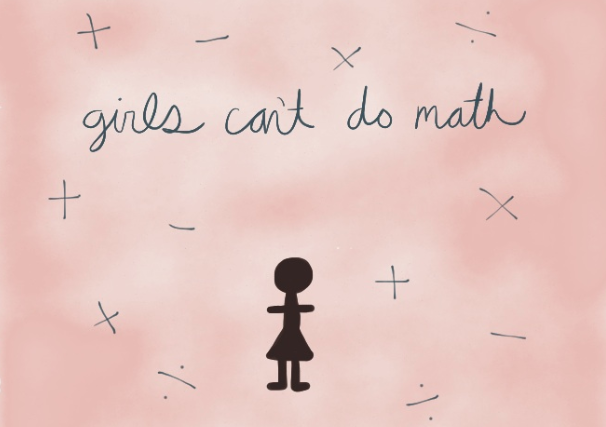 girls can't do math